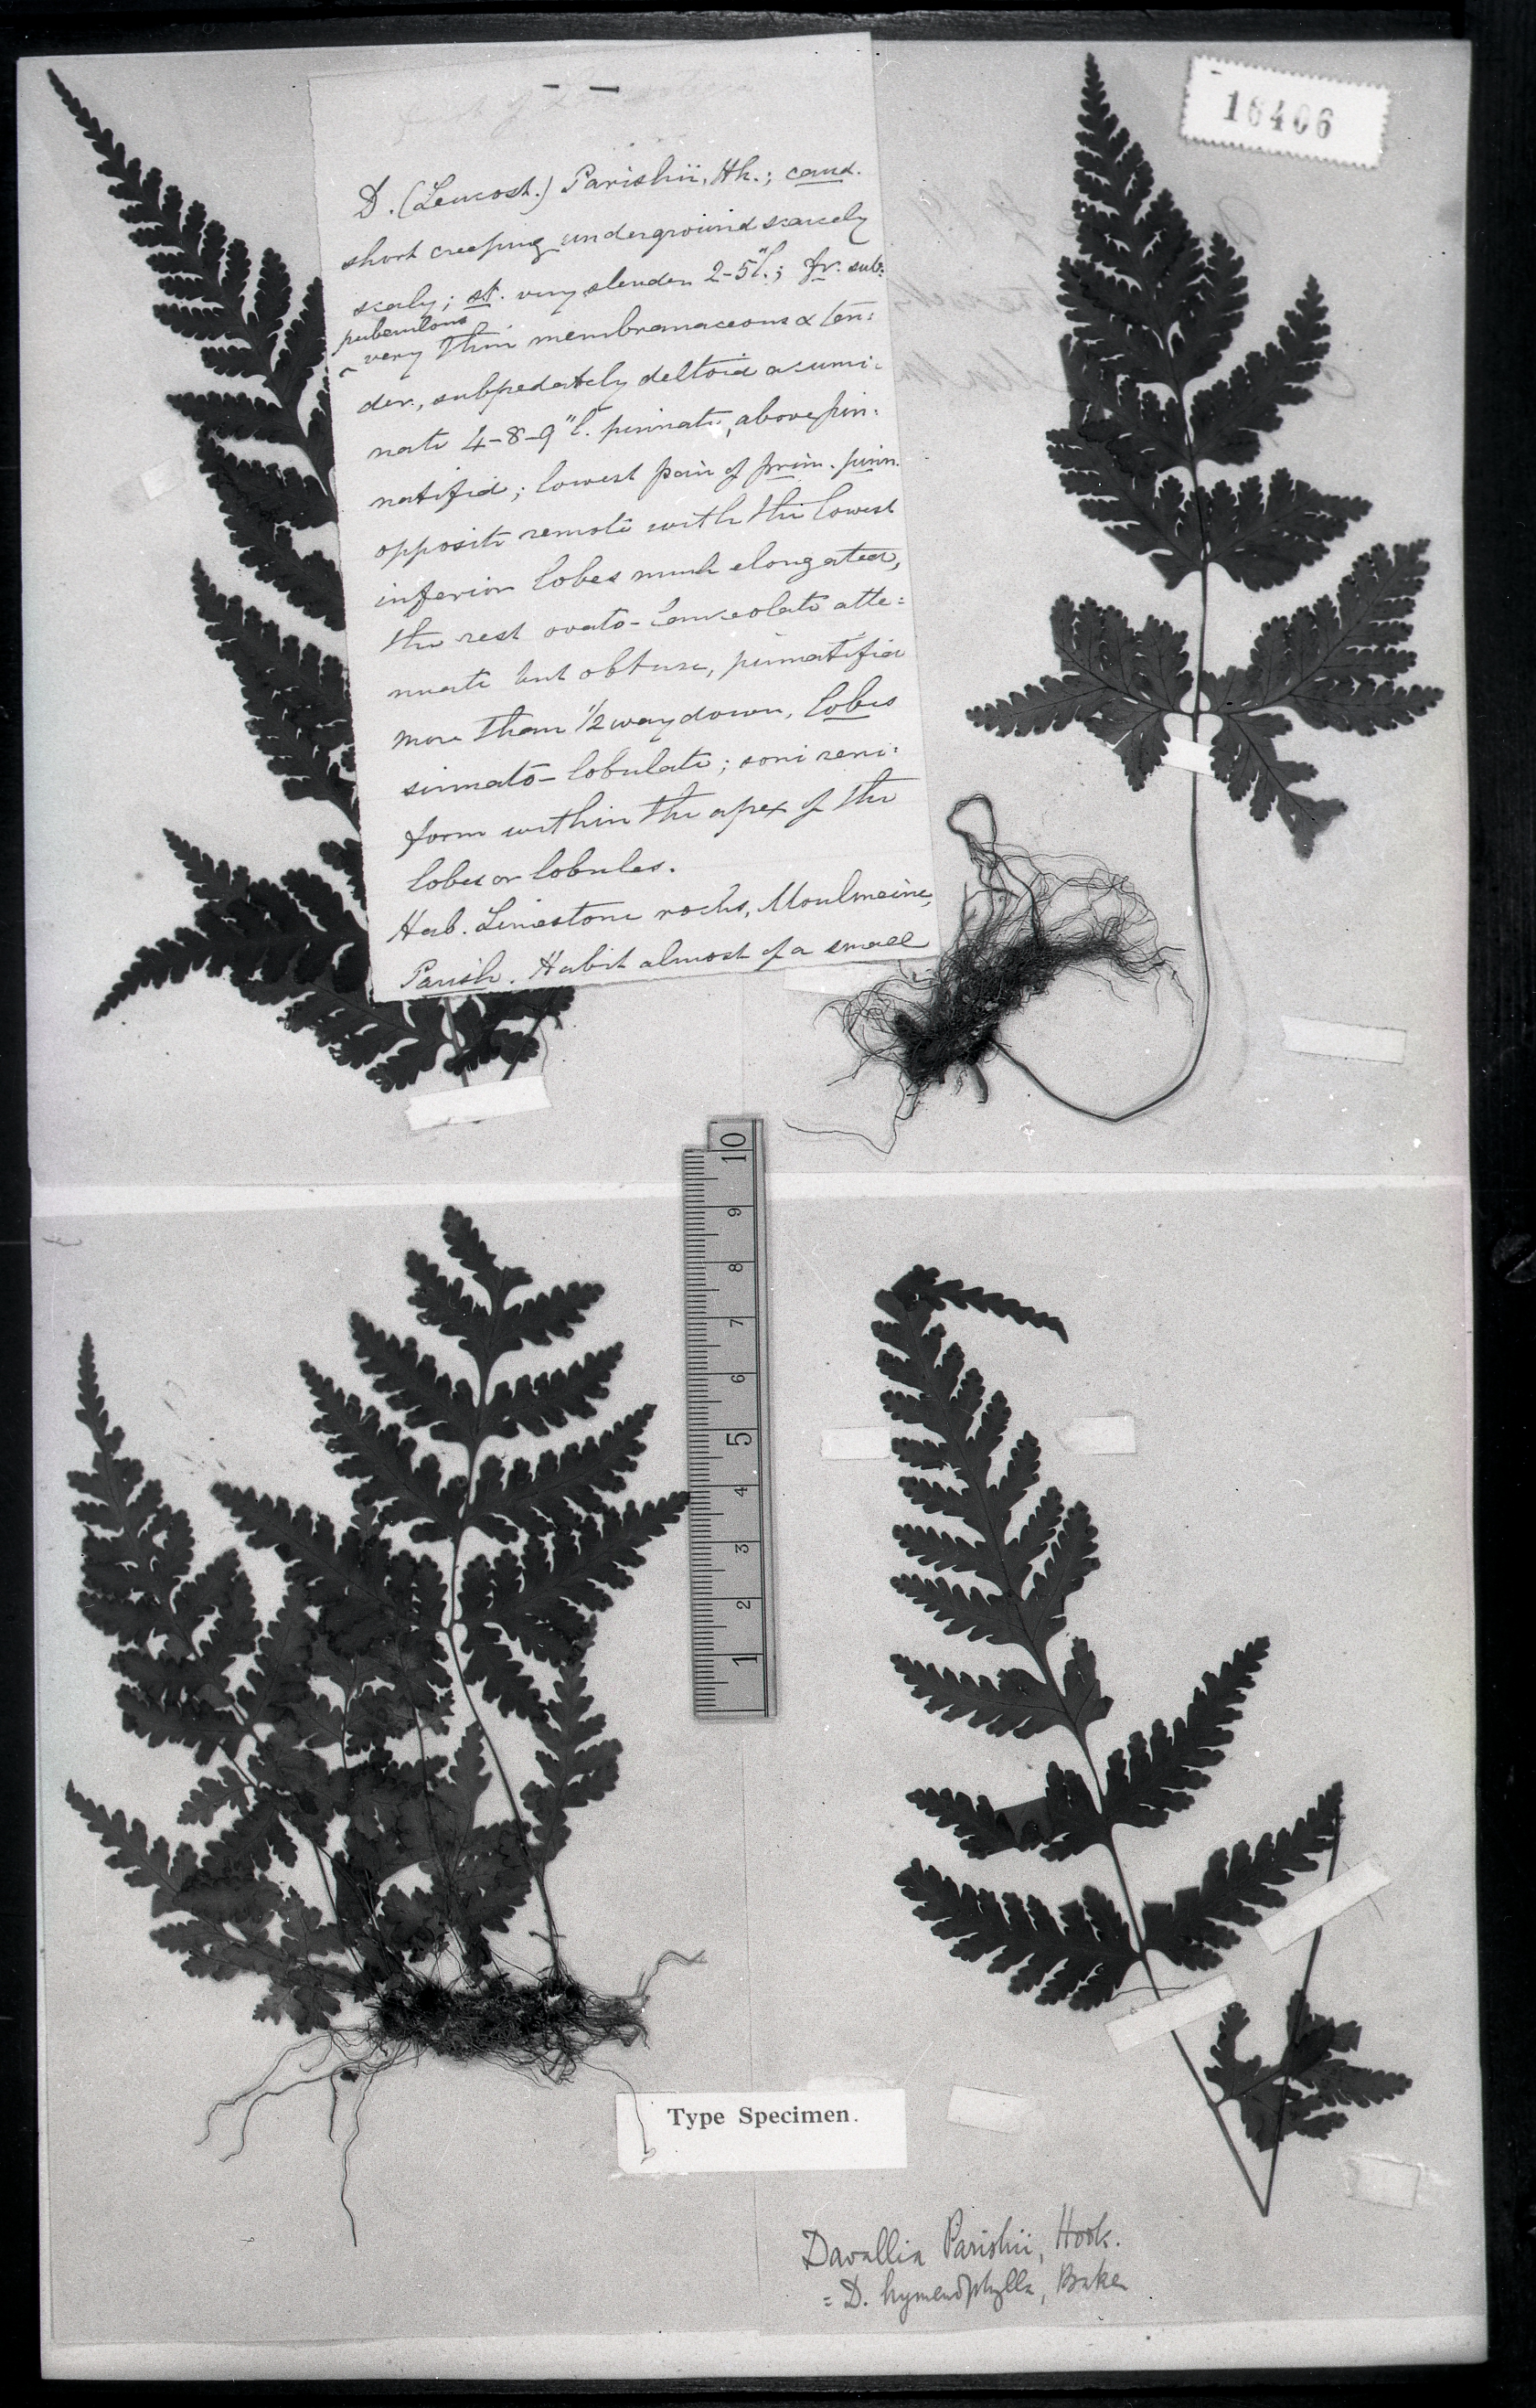 16406
D. (Leucost.) Parishii, Hk.; caud.
short creeping underground scarcely
scaly; st. very slender 2-5" l.; fr. sub:
puberulous
very thin membranaceous & ten:
der, subpedately deltoid acumi:
nate 4-8-9" l. pinnate, above pin:
natifid; lowest pair of prim. pinn.
opposite remote with the lowest
inferior lobes much elongated,
the rest ovato-lanceolate atte:
nuate but obtuse, pinnatifid
more than 1/2 way down, lobes
sinnato-lobulate; sori reni:
form within the apex of the
lobes or lobules.
Hab. Limestone rocks, Moulmeine,
Parish. Habit almost of a small
10
9
8
7
6
5
4
3
2
1
Type Specimen.
Davallia Parishii, Hook.
= D. hymenophylla, Baker